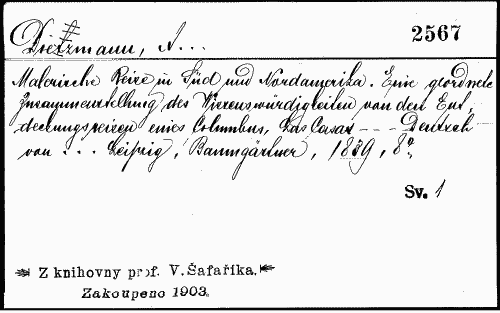 2567
Dietzmann, A...
Malerische Reise in Süd und Nordamerika. Eine geordnete
Zusammenstellung des Wissenswürdigsten von den Ent
deckungsreisen eines Columbus, Las Casas --- Deutsch
von ... Leipzig, Baumgärtner, 1839, 8°.
Sv. 1
Z knihovny prof. V. Šafaříka.
Zakoupeno 1903.